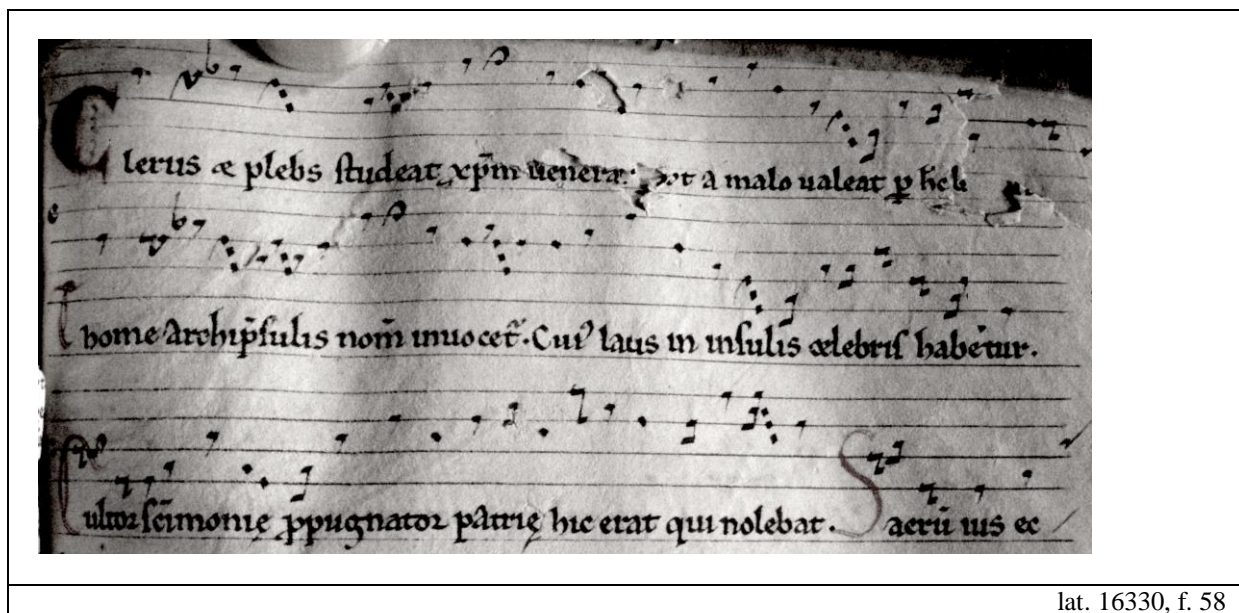 Clerus æ plebs studeat xp̄m uenera ut a malo ualeat p̱
Thome archip̄sulis nom̄ inuocet᷑. Cui⁹ laus in insulis celebris habet᷑ur.
Cultor sc̄imonię ꝓpugnator patrię hic erat qui nolebat. Sacrū ius ec
lat. 16330, f. 58